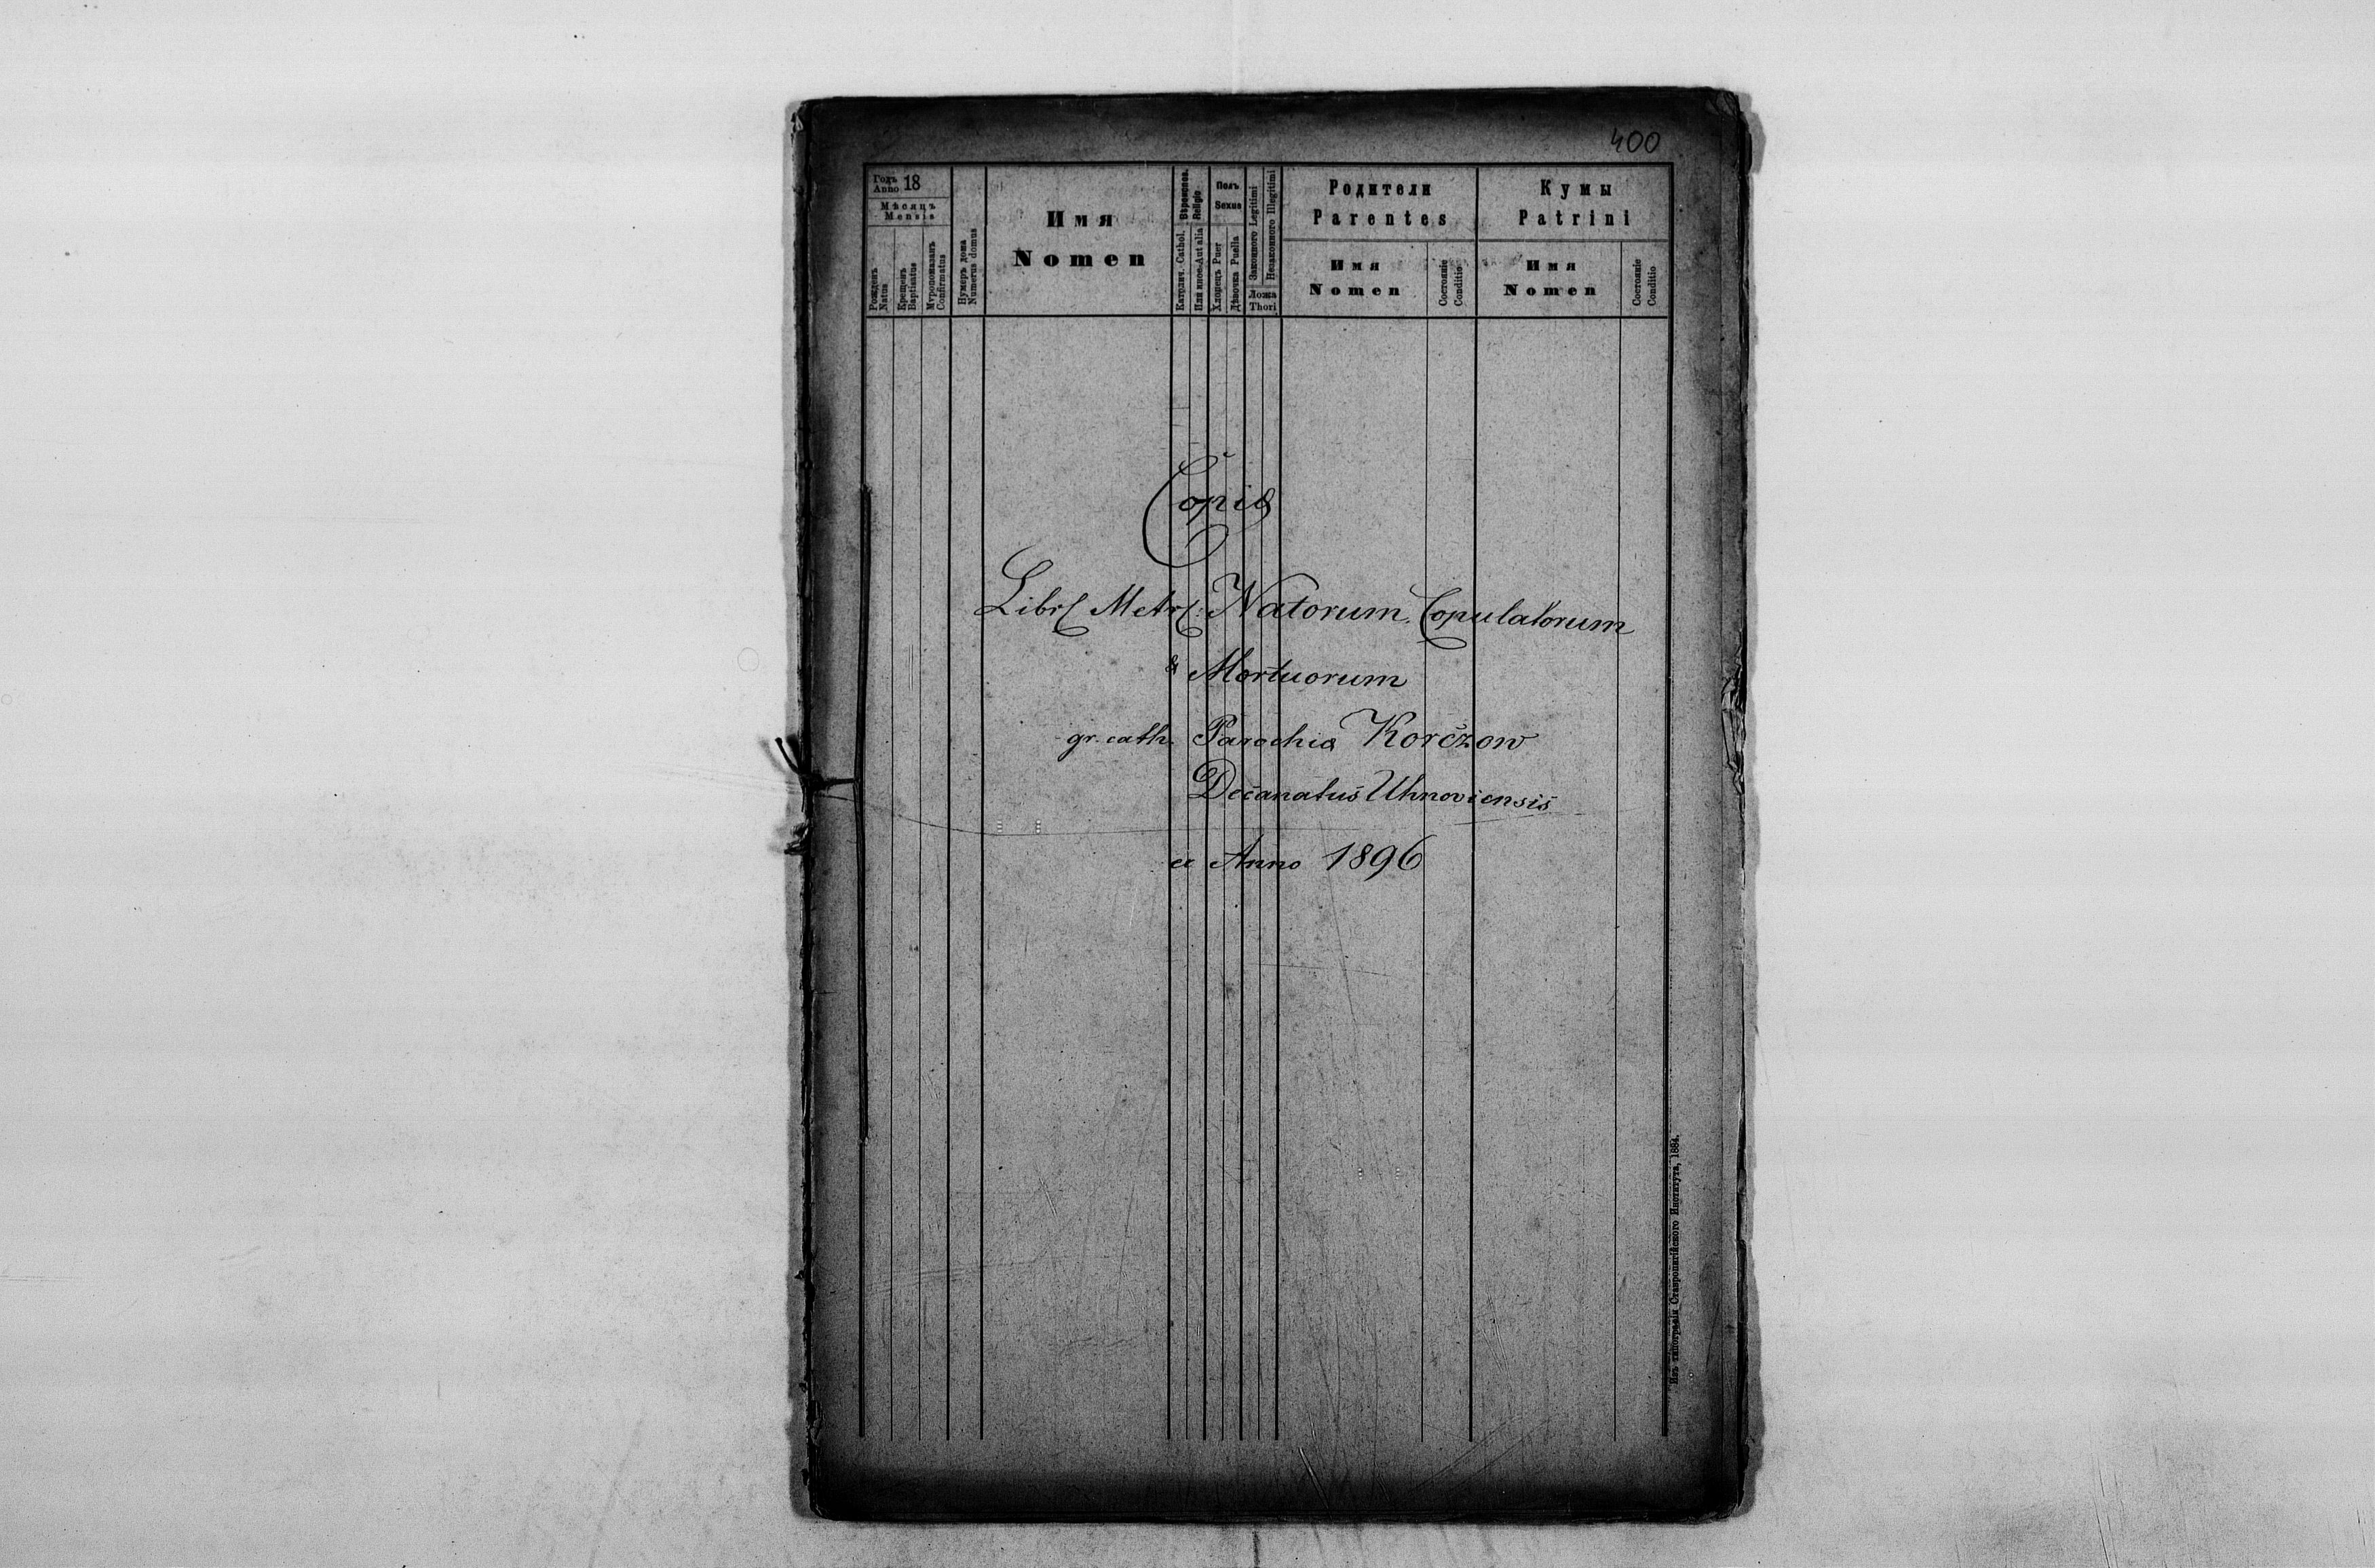 400
Годъ
Anno 18
Мѣсяцъ
Mensis
Рожденъ
Natus
Крещенъ
Baptisatus
Мѵропомазанъ
Confirmatus
Нумеръ дома
Numerus domus
Имя
Nomen
Религіо
Religio
Католич. Cathol.
Или иное Aut alia
Полъ
Sexus
Хлопецъ Puer
Дѣвочка Puella
Законного Legitimi
Незаконного Illegitimi
Ложа
Thori
Родители
Parentes
Имя
Nomen
Состояніе
Conditio
Кумы
Patrini
Имя
Nomen
Состояніе
Conditio
Copia
Libr Metr: Natorum, Copulatorum
& Mortuorum
gr. cath. Parochia Korczow
Decanatus Uhnoviensis
Anno 1896
Изъ типографіи Ставропигійского Института, 1884.